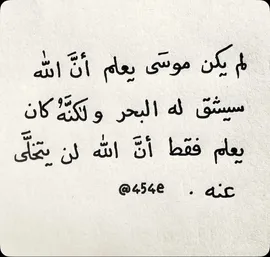 لم يكن موسَى يعلم أنَّ الله
سيشق له البحر ولكنَّهُ كان
يعلم فقط أنَّ الله لن يتخلَّى
عنه . @454e